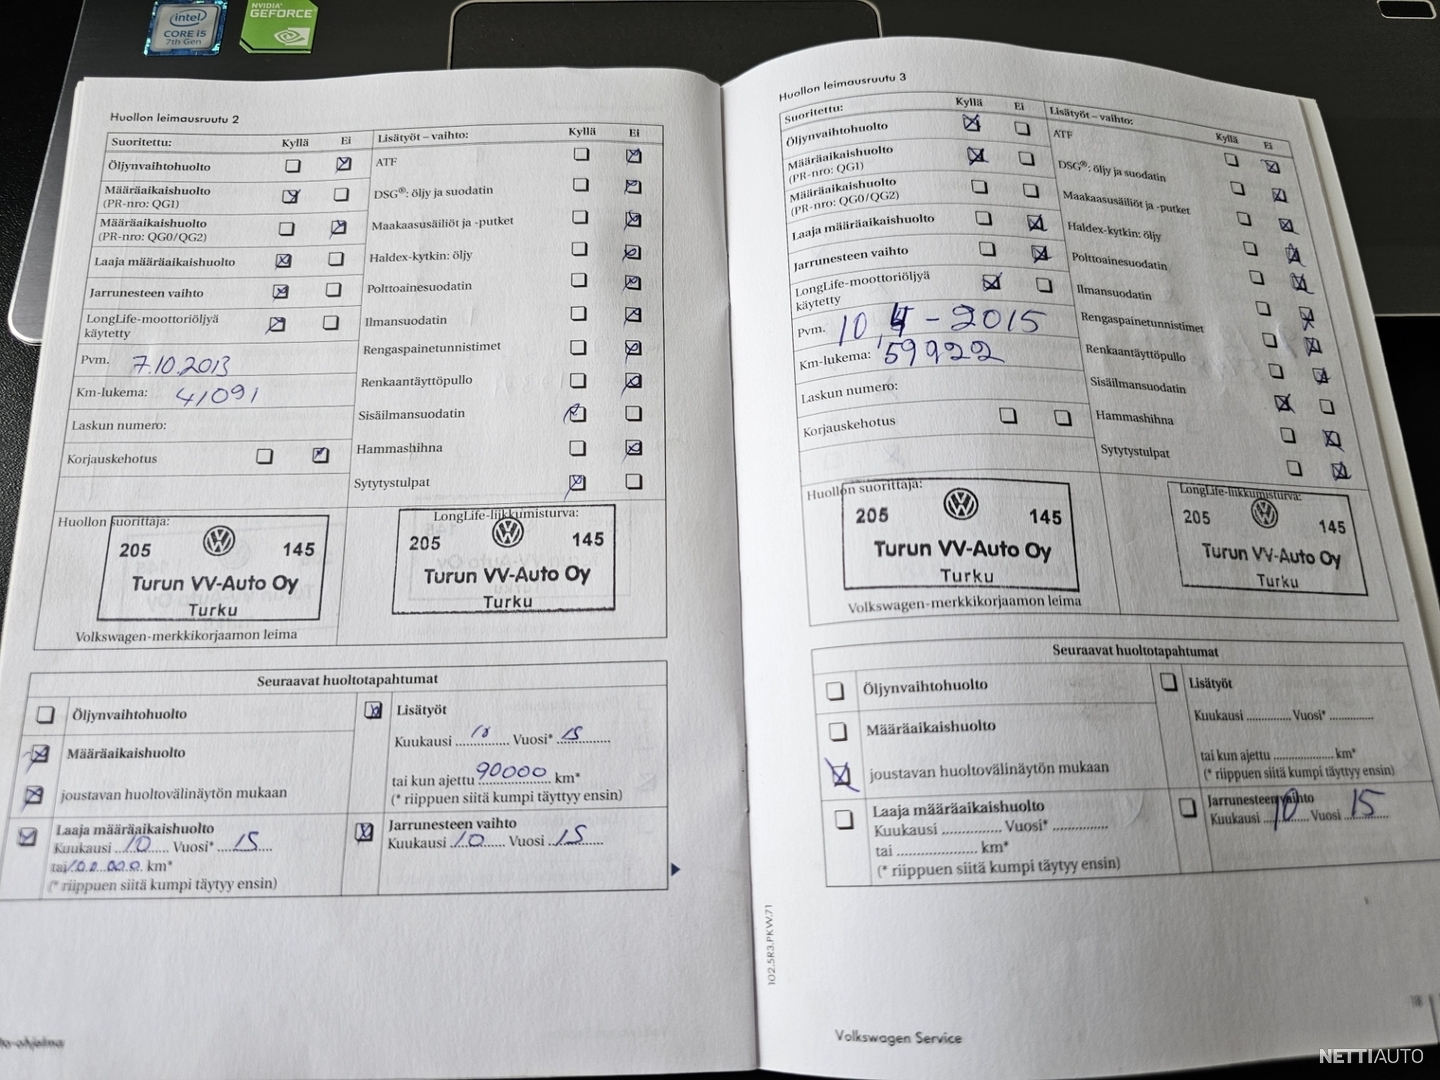 intel
CORE i5
7th Gen
NVIDIA
GEFORCE
Huollon leimausruutu 2
Suoritettu: Kyllä Ei
Öljynvaihtohuolto
Määräaikaishuolto
(PR-nro: QG1)
Määräaikaishuolto
(PR-nro: QG0/QG2)
Laaja määräaikaishuolto
Jarrunesteen vaihto
LongLife-moottoriöljyä
käytetty
Pvm. 7.10.2013
Km-lukema: 41091
Laskun numero:
Korjauskehotus
Lisätyöt – vaihto: Kyllä Ei
ATF
DSG®: öljy ja suodatin
Maakaasusäiliöt ja -putket
Haldex-kytkin: öljy
Polttoainesuodatin
Ilmansuodatin
Rengaspainetunnistimet
Renkaantäyttöpullo
Sisäilmansuodatin
Hammashihna
Sytytystulpat
Huollon suorittaja:
205 145
Turun VV-Auto Oy
Turku
Volkswagen-merkkikorjaamon leima
LongLife-liikkumisturva:
205 145
Turun VV-Auto Oy
Turku
Seuraavat huoltotapahtumat
Öljynvaihtohuolto
Määräaikaishuolto
joustavan huoltovälinäytön mukaan
Laaja määräaikaishuolto
Kuukausi 10 Vuosi* 15
tai 100.000 km*
(* riippuen siitä kumpi täytyy ensin)
Lisätyöt
Kuukausi 10 Vuosi* 15
tai kun ajettu 90000 km*
(* riippuen siitä kumpi täyttyy ensin)
Jarrunesteen vaihto
Kuukausi 10 Vuosi 15
Huollon leimausruutu 3
Suoritettu: Kyllä Ei
Öljynvaihtohuolto
Määräaikaishuolto
(PR-nro: QG1)
Määräaikaishuolto
(PR-nro: QG0/QG2)
Laaja määräaikaishuolto
Jarrunesteen vaihto
LongLife-moottoriöljyä
käytetty
Pvm. 10 4 - 2015
Km-lukema: 59922
Laskun numero:
Korjauskehotus
Lisätyöt – vaihto: Kyllä Ei
ATF
DSG®: öljy ja suodatin
Maakaasusäiliöt ja -putket
Haldex-kytkin: öljy
Polttoainesuodatin
Ilmansuodatin
Rengaspainetunnistimet
Renkaantäyttöpullo
Sisäilmansuodatin
Hammashihna
Sytytystulpat
Huollon suorittaja:
205 145
Turun VV-Auto Oy
Turku
Volkswagen-merkkikorjaamon leima
LongLife-liikkumisturva:
205 145
Turun VV-Auto Oy
Turku
Seuraavat huoltotapahtumat
Öljynvaihtohuolto
Määräaikaishuolto
joustavan huoltovälinäytön mukaan
Laaja määräaikaishuolto
Kuukausi Vuosi*
tai km*
(* riippuen siitä kumpi täytyy ensin)
Lisätyöt
Kuukausi Vuosi*
tai kun ajettu km*
(* riippuen siitä kumpi täyttyy ensin)
Jarrunesteen vaihto
Kuukausi 10 Vuosi 15
102.5R3.PKW.71
Volkswagen Service
NETTIAUTO